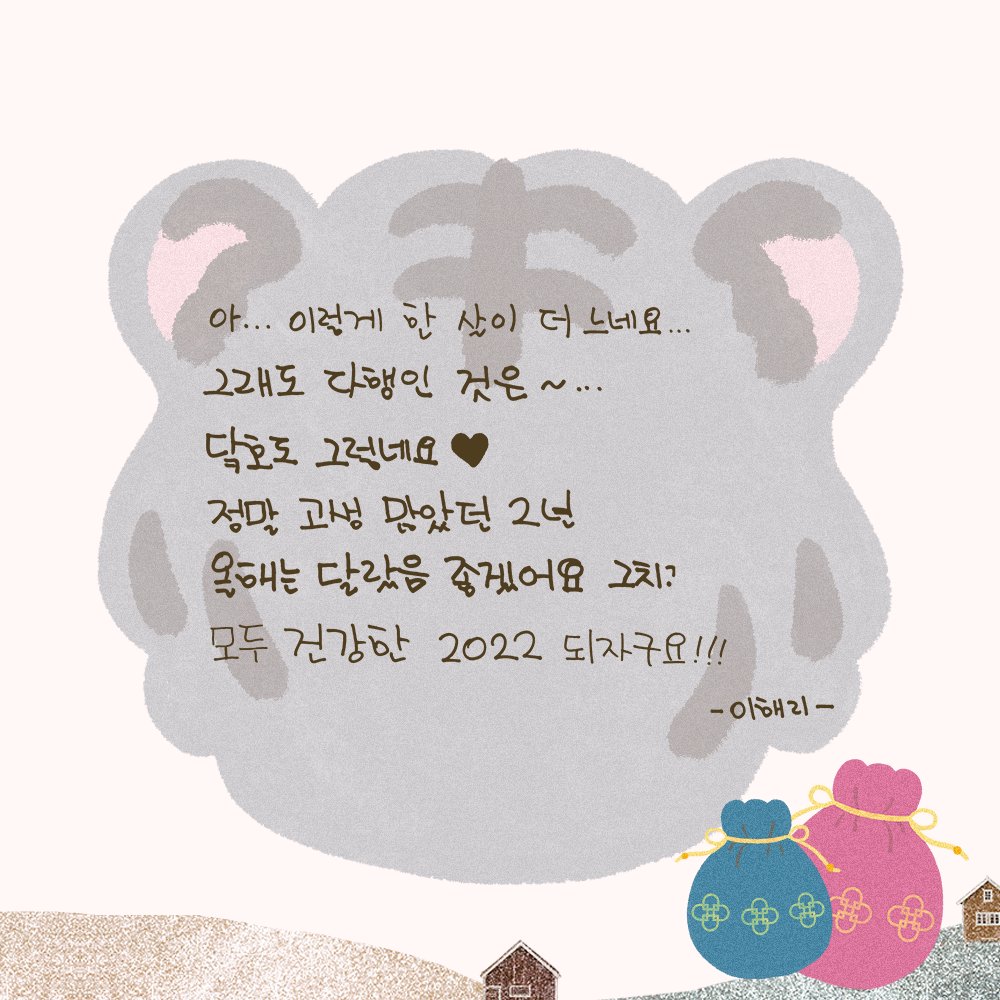 아... 이렇게 한 살이 더 느네요...
그래도 다행인 것은 ~...
닥호도 그렇네요 ♥
정말 고생 많았던 2년
올해는 달랐음 좋겠어요 그치?
모두 건강한 2022 되자구요!!!
-이해리-